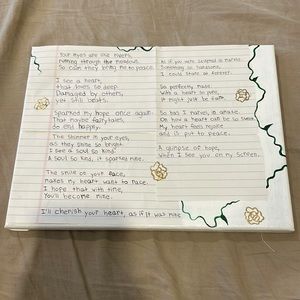 Your eyes are like rivers,
running through the meadows.
So calm they bring me to peace.
I see a heart,
that loves so deep.
Damaged by others,
yet still beats.
Sparked my hope once again.
That maybe fairytales,
do end happily.
The shimmer in your eyes,
as they shine so bright.
I see a soul so kind.
A soul so kind, it sparked mine.
The smile of your face,
makes my heart want to race.
I hope that with time,
You'll become mine.
I'll cherish your heart, as if it was mine.
As if you were sculpted in marble
Something so handsome,
I could stare at forever.
So perfectly made,
with a heart so pure,
It might just be fate.
So bad I naive, in awake.
Oh how a heart can be so sweet.
My heart feels
and is put to peace.
A glimpse of hope,
When I see you on my screen.